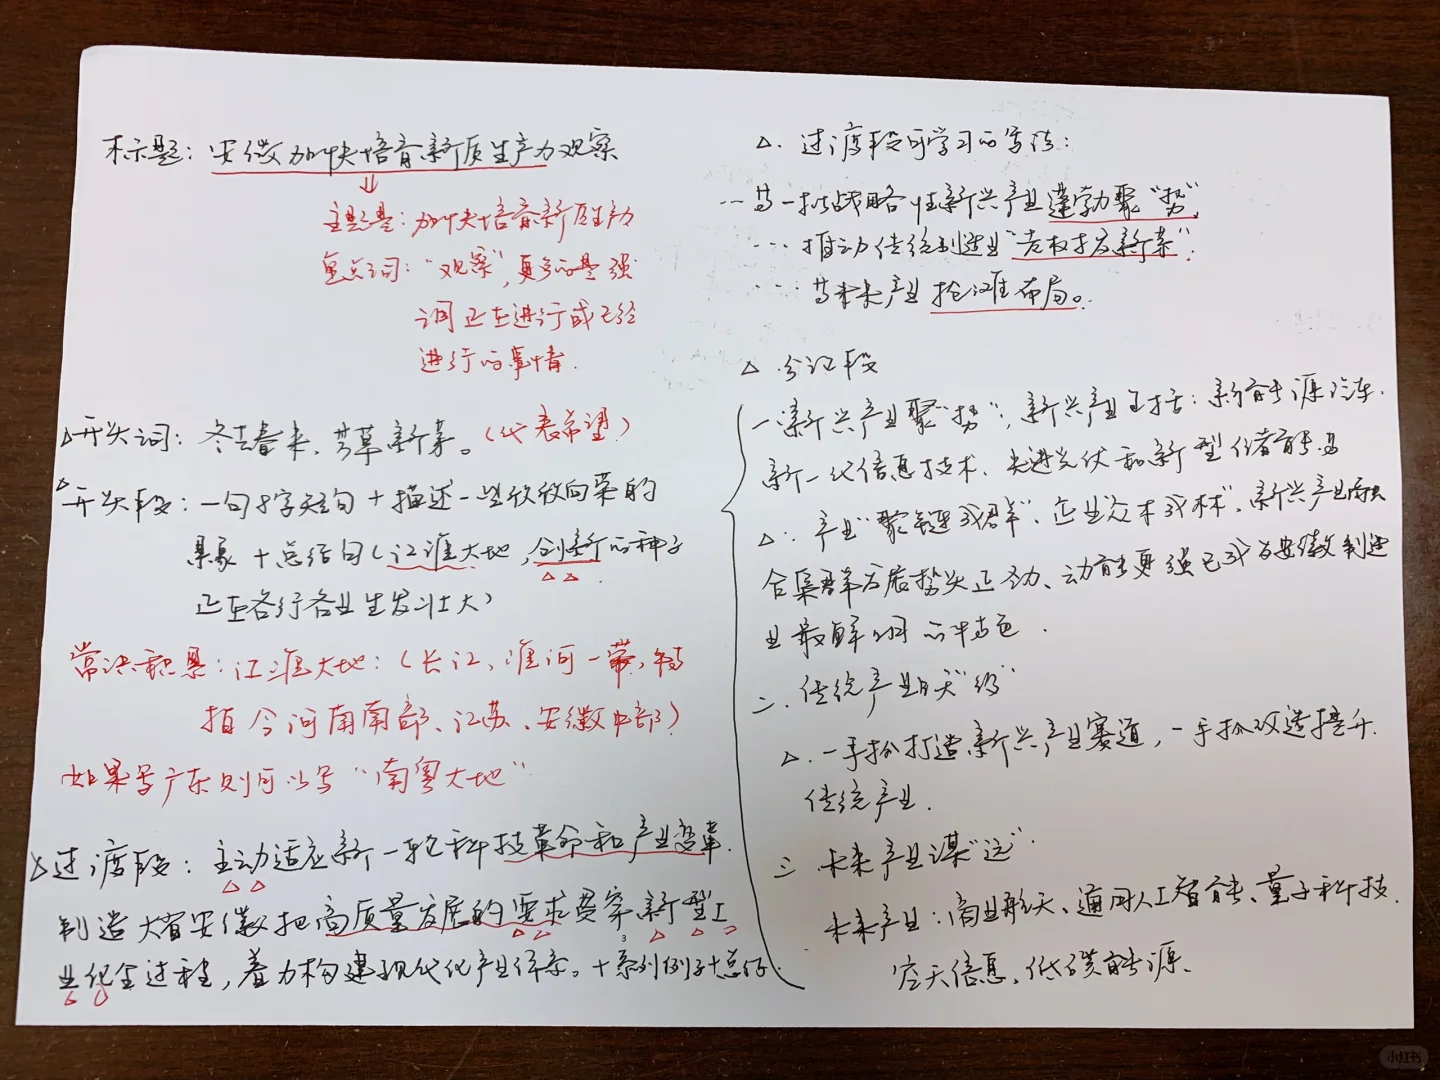 标题：安徽加快培育新质生产力观察
主题是：加快培育新质生产力
重点词：“观察”，更多的是强
调正在进行或已经
进行的事情.
开头词：冬去春来，芳草新芽。（代表希望）
开头段：一句8字短句＋描述一些欣欣向荣的
景象＋总结句（江淮大地，创新的种子
正在各行各业生发壮大）
常识积累：江淮大地：（长江、淮河一带，特
指今河南南部、江苏、安徽中部）
如果写广东则可以写“南粤大地”
过渡段：主动适应新一轮科技革命和产业变革.
制造大省安徽把高质量发展的要求贯穿新型工
业化全过程，着力构建现代化产业体系。＋系列例子＋总结.
△. 过渡段可学习的写法：
…当一批战略性新兴产业蓬勃聚“势”，
… 推动传统制造业“老树发新芽”.
… 当未来产业抢滩布局。
△ 分论段
一.新兴产业聚“势”，新兴产业包括：新能源汽车.
新一代信息技术、先进光伏和新型储能等
△. 产业“聚链成群”、企业“众木成林”，新兴产业融
合集群发展势头正劲、动能更强已成为安徽制造
业最鲜明的特色.
二. 传统产业焕“新”
△. 一手抓打造新兴产业赛道，一手抓改造提升.
传统产业.
三 未来产业谋“远”
未来产业：商业航天、通用人工智能、量子科技.
空天信息、低碳能源、
小红书